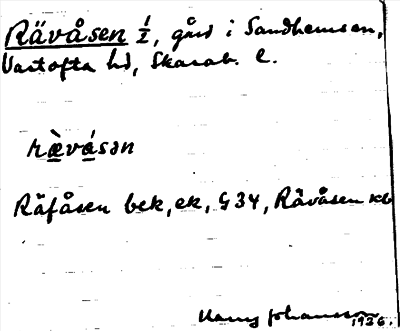 Rävåsen 1/2, gård i Sandhemsen,
Vartofta hd, Skarab. l.
ræ̀vásən
Räfåsen bek, ek, G 34, Rävåsen kb
Harry Johansson 1926.